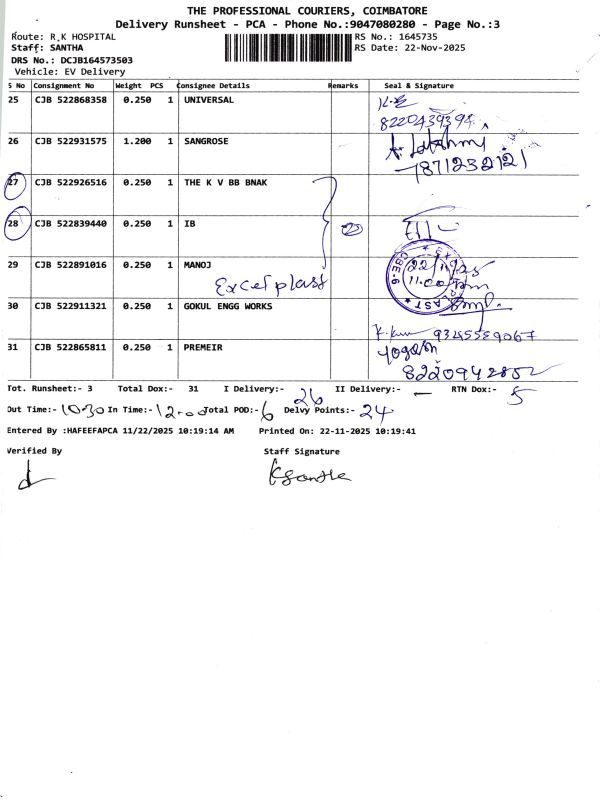 THE PROFESSIONAL COURIERS, COIMBATORE
Delivery Runsheet - PCA - Phone No.:9047080280 - Page No.:3
Route: R.K HOSPITAL RS No.: 1645735
Staff: SANTHA RS Date: 22-Nov-2025
DRS No.: DCJB164573503
Vehicle: EV Delivery
S No Consignment No Weight PCS Consignee Details Remarks Seal & Signature
25 CJB 522868358 0.250 1 UNIVERSAL
8220439394
26 CJB 522931575 1.200 1 SANGROSE A. Lakshmi
7871232121
27 CJB 522926516 0.250 1 THE K V BB BNAK
28 CJB 522839440 0.250 1 IB
29 CJB 522891016 0.250 1 MANOJ 22/11/25
Excel plast 11.00
CBE-6
30 CJB 522911321 0.250 1 GOKUL ENGG WORKS
9345559067
31 CJB 522865811 0.250 1 PREMEIR Yogesh
8220942852
Tot. Runsheet:- 3 Total Dox:- 31 I Delivery:- 26 II Delivery:- — RTN Dox:- 5
Out Time:- 10-30 In Time:- 12-00 Total POD:- 6 Delvy Points:- 24
Entered By :HAFEEFAPCA 11/22/2025 10:19:14 AM Printed On: 22-11-2025 10:19:41
Verified By Staff Signature
K Santha